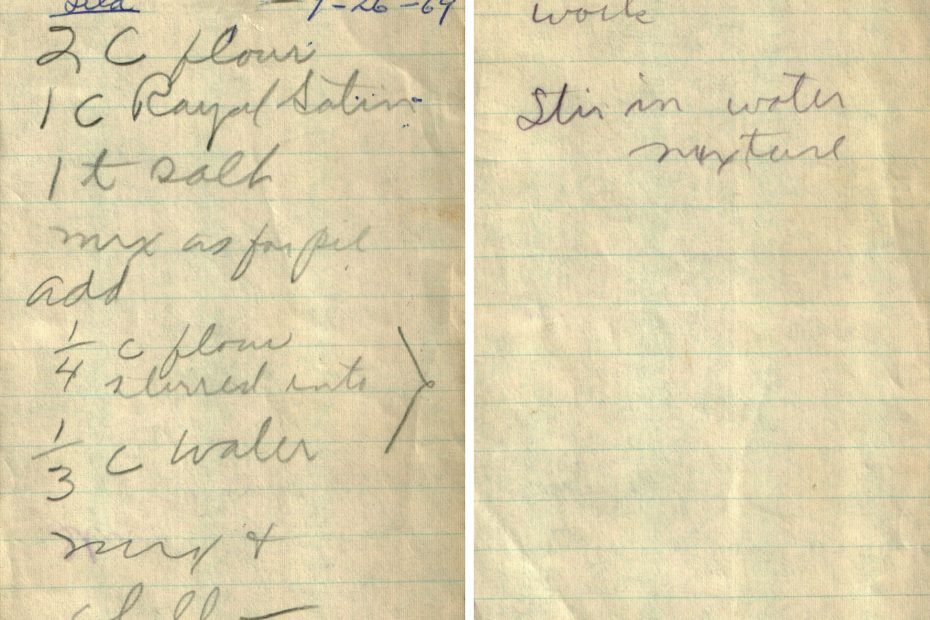 9-26-64
2 C flour
1 C Royal Satin
1 t salt
mix as for pie
add
1/4 c flour
stirred into
1/3 c water
mix +
work
Stir in water
mixture